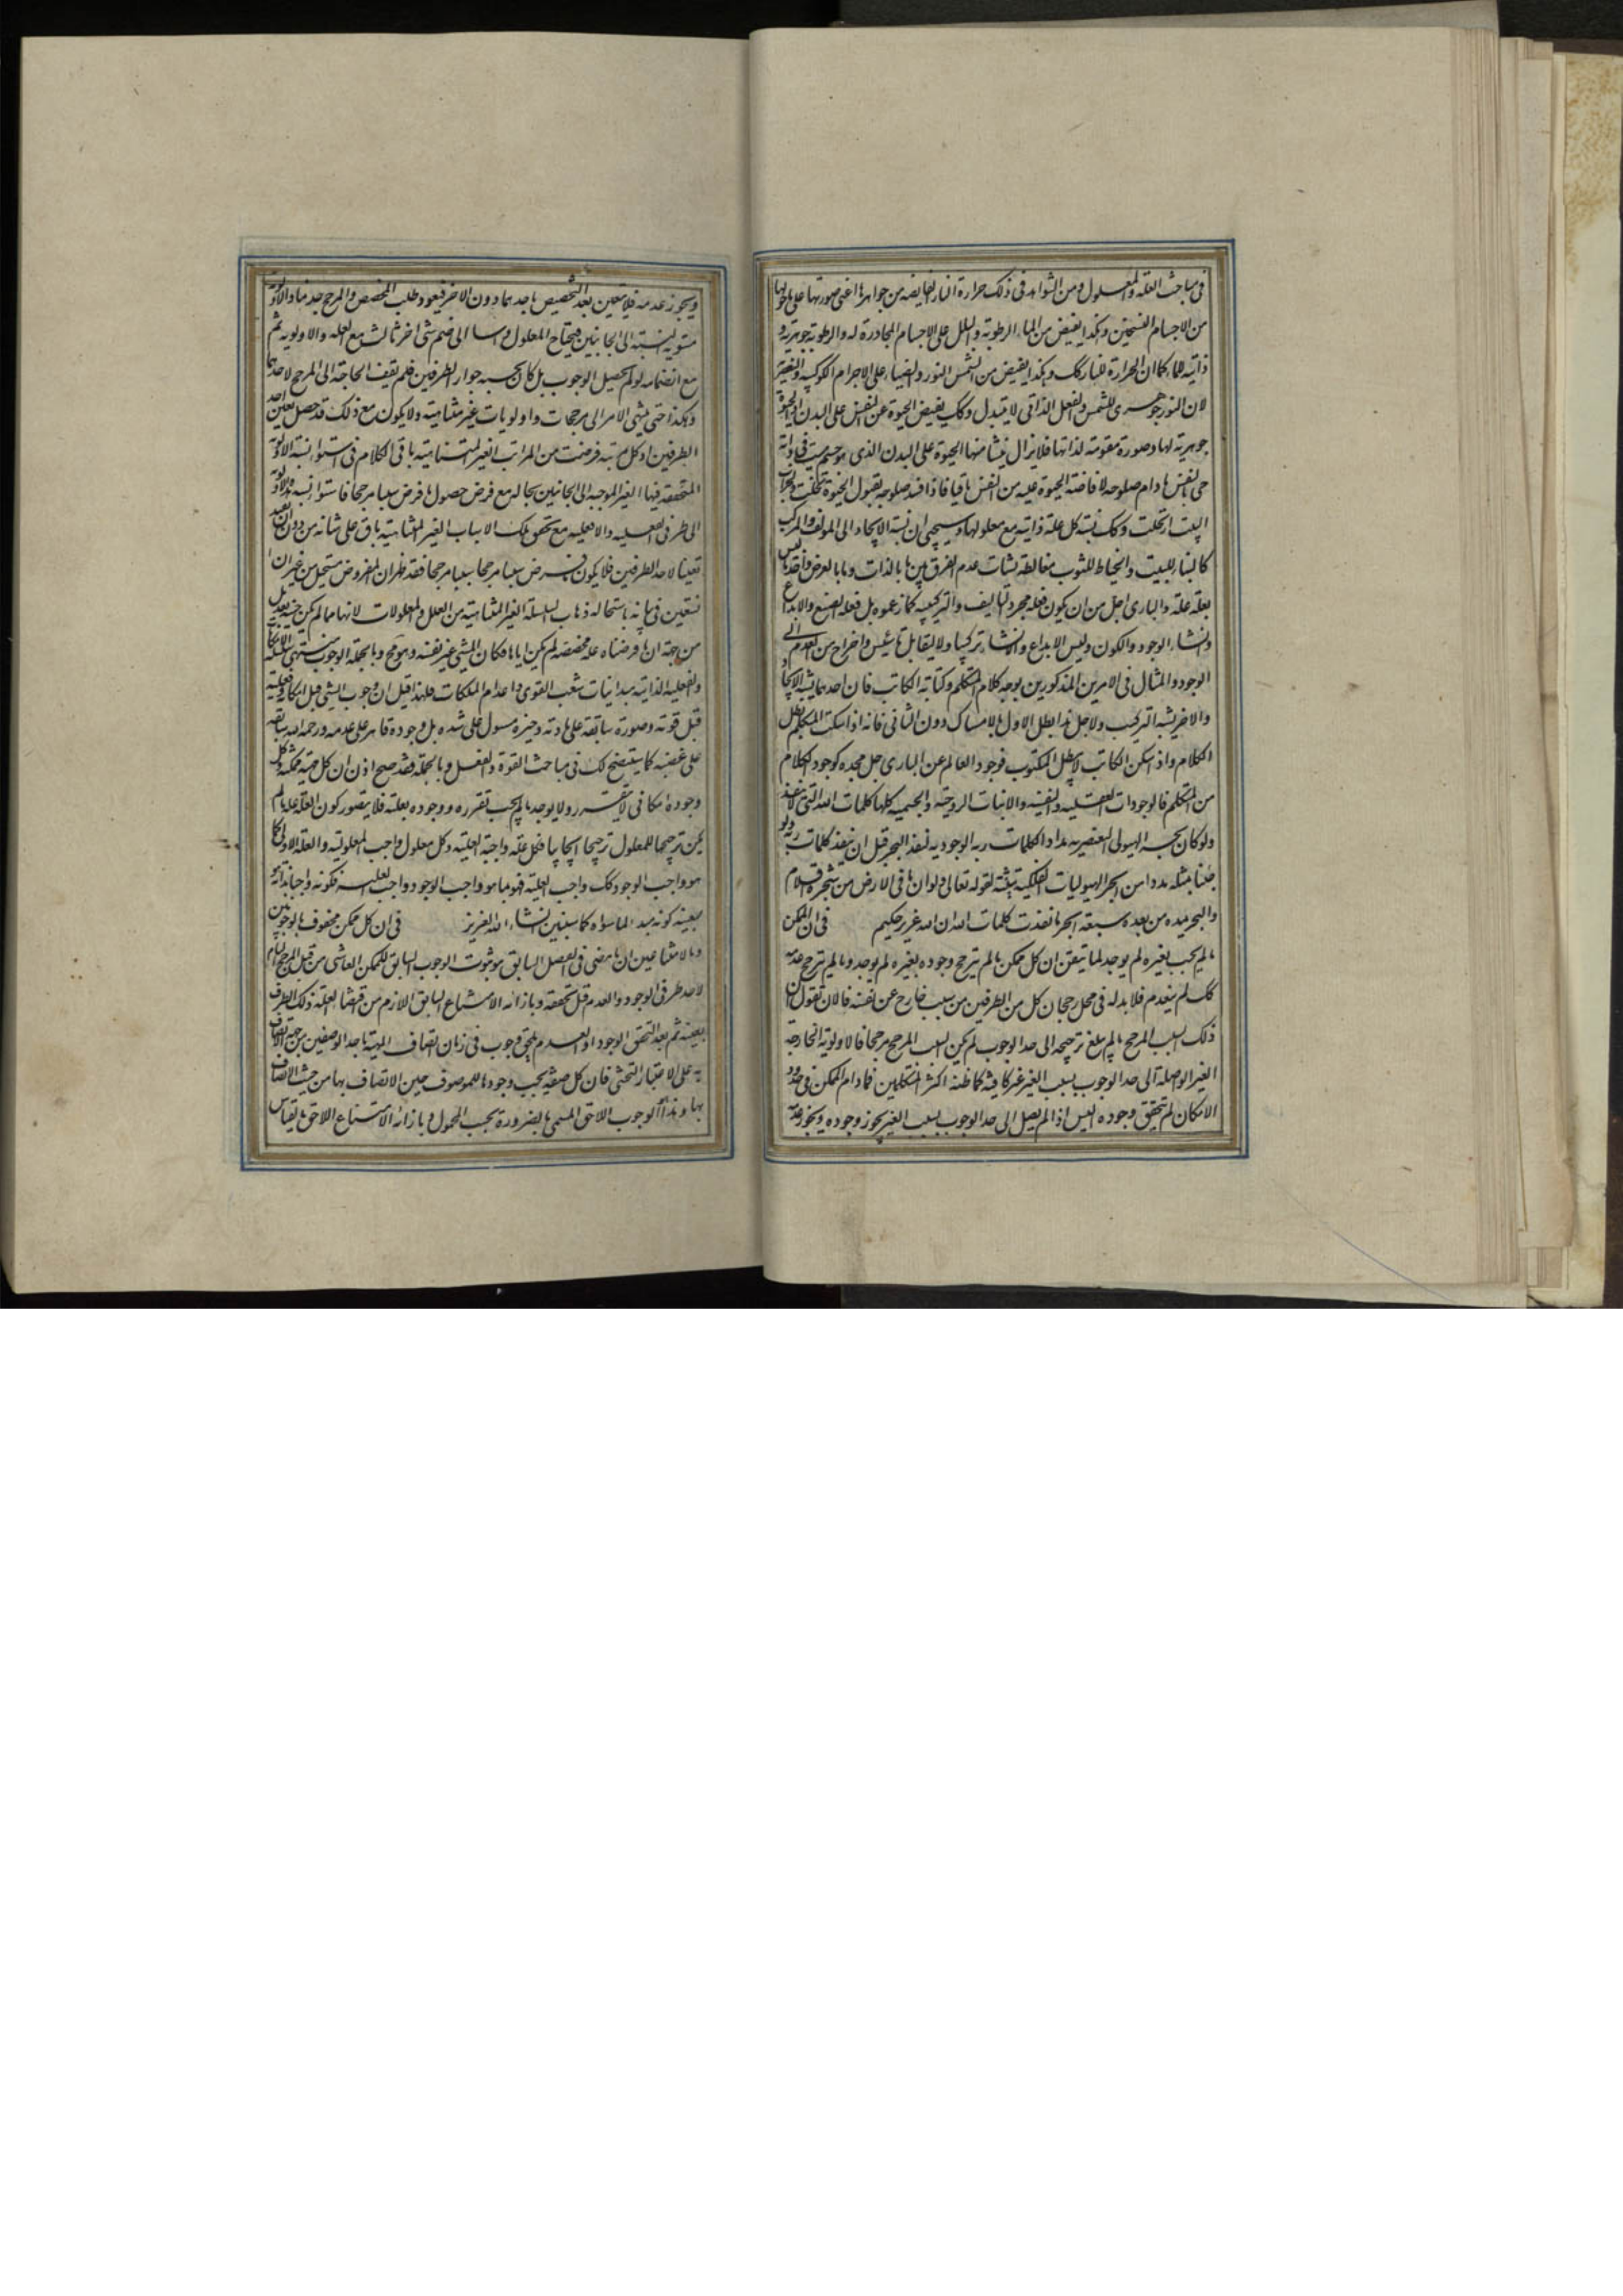 فى مباحث العلة والمعلول ومن الشواهد فى ذلك حرارة النار الفايضه من جواهرها اعنى صورتها على ما حولها
من الاجسام التسخين وهكذا يفيض من الماء الرطوبة والبلل على الاجسام المجاورة له والرطوبة جوهرية و
ذاتية للماء كما ان الحرارة للنار كك وهكذا يفيض من الشمس النور والضياء على الاجرام الكوكبيه والعنصرية
لان النور جوهرى للشمس والفعل الذاتى لا يتبدل وكك يفيض الحيوة عن النفس على البدن اذ الحيوة
جوهرية لها وصورة مقومة لذاتها فلا يزال ينشا منها الحيوة على البدن الذى هو جسم ميت فى ذاته
حى بالنفس ما دام صلوحه لافاضة الحيوة عليه من النفس باقيا فاذا فسد صلوحه لقبول الحيوة تخلت وخراب
البيت ارتحلت وكك نسبة كل علة ذاتية مع معلولها وسيجىء ان نسبة الايجاد الى المولف والمركب
كالبناء للبيت والخياط للثوب مغالطة نشات عدم الفرق بين ما بالذات وما بالعرض فاحدها ليس
بعلة علة والبارى اجل من ان يكون فعله مجرد التاليف والتركيب كما زعموه بل فعله الصنع والابداع
وانشاء الوجود والكون وليس الابداع والانشاء تركيبا ولا تاليفا بل تاييس واخراج من العدم الى
الوجود والمثال فى الامرين المذكورين بوجه كلام المتكلم وكتابة الكاتب فان احدهما يشبه الايجاد
والاخر يشبه التركيب ولاجل هذا بطل الاول بالامساك دون الثانى فانه اذا سكت المتكلم بطل
الكلام واذا سكن الكاتب لا يبطل المكتوب فوجود العالم عن البارى جل مجده كوجود الكلام
من المتكلم فالوجودات العقليه والنفسيه والانيات الروحية والجسميه كلها كلمات الله التى لا تنفد
ولو كان بحر الهيولى العنصريه مدادا لكلمات ربه الوجوديه لنفد البحر قبل ان تنفد كلمات ربه ولو
جئنا بمثله مددا من ابحر الهيوليات الفلكية لقوله تعالى ولو ان ما فى الارض من شجرة اقلام
والبحر يمده من بعده سبعة ابحر ما نفدت كلمات الله ان الله عزيز حكيم فى ان الممكن
ما لم يجب بغيره لم يوجد لما تيقن ان كل ممكن ما لم يترجح وجوده بغيره لم يوجد وما لم يترجح عدمه
كك لم ينعدم فلا بد له فى محل رجحان كل من الطرفين من سبب خارج عن نفسه فالان نقول ان
ذلك السبب المرجح ما لم يبلغ ترجيحه الى حد الوجوب لم يكن السبب المرجح مرجحا فالاولوية الخارجة
الغير الواصلة الى حد الوجوب بسبب الغير غير كافية كما ظنه اكثر المتكلمين فما دام الممكن فى حدود
الامكان لم يتحقق وجوده اليس اذا لم يصل الى حد الوجوب بسبب الغير يجوز وجوده ويجوز عدمه
ويجوز عدمه فلا يتعين بعد التخصيص باحدهما دون الاخر فيعود طلب المخصص والمرجح جذعا والاولوية
مستوية النسبة الى الجانبين فيحتاج المعلول الى ضم شى اخر ثالث مع العلة والاولويه ثم
مع انضمامه لو لم يحصل الوجوب بل كان بحسبه جواز الطرفين فلم يقف الحاجة الى المرجح لاحدهما
وهكذا حتى ينتهى الامر الى مرجحات واولويات غير متناهية ولا يكون مع ذلك قد حصل تعين احد
الطرفين اذ كل مرتبة فرضت من المراتب الغير المتناهية باقى الكلام فى استواء نسبة الاولوية
المتحققه فيها الغير الموجبه الى الجانبين بحاله مع فرض حصول ما فرض سببا مرجحا فاستواء نسبة الاولوية
الى طرفى الفعليه واللافعليه مع تحقق تلك الاسباب الغير المتناهية باق على شانه من دون ان يفيد
تعينا لاحد الطرفين فلا يكون ما فرض سببا مرجحا سببا مرجحا فقد ظهر ان المفروض مستحيل من غير ان
نستعين فى بيانه باستحالة ذهاب السلسلة الغير المتناهية من العلل والمعلولات لانها مما لم يكن حينئذ بل
من جهة ان ما فرضناه علة مخصصة لم يكن اياها فكان الشئ غير نفسه وهو مح وبالجملة الوجوب منتهى سلسلة الامكان
والفعلية الذاتيه مبدا انبات شعب القوى واعدام الملكات ولهذا قيل ان وجوب الشئ قبل امكانه وفعليته
قبل قوته وصورته سابقة على مادته وخيره مسول على شره بل وجوده قاهر على عدمه ورحمة الله سابقه
على غضبه كما يتضح لك فى مباحث القوة والفعل وبالجملة فقد صح اذن ان كل مهية ممكنة وكل
وجود امكانى لا يتقرر ولا يوجد ما لم يجب تقرره ووجوده بعلته فلا يتصور كون العلة علة ما لم
يكن ترجيحها للمعلول ترجيحا ايجابيا فكل علة واجبة العلية وكل معلول واجب المعلولية والعلة الاولى كما
هو واجب الوجود كك واجب العلية فهو بما هو واجب الوجود واجب العلية فكونه واجبا بذاته هو
بعينه كونه مبدء لما سواه كما سنبين ان شاء الله العزيز فى ان كل ممكن محفوف بالوجوبين
وبالامتناعين ان ما مضى فى الفصل السابق هو ثبوت الوجوب السابق للممكن الناشى من قبل المرجح التام
لاحد طرفى الوجود والعدم قبل تحققه وبازائه الامتناع السابق اللازم من اقتضاء العلة ذلك الطرف
بعينه ثم بعد التحقق الوجود او العدم يلحق وجوب فى زمان اتصاف المهية باحد الوصفين من جهة الاتصاف
به على الاعتبار التحيثى فان كل صفة يجب وجودها للموصوف حين الاتصاف بها من حيث الاتصاف
بها وهذا هو الوجوب اللاحق المسمى بالضرورة بحسب المحمول وبازائه الامتناع اللاحق بالقياس